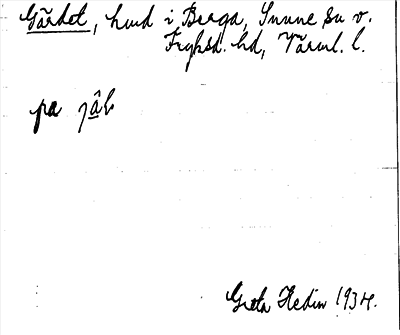 Gärdet, hmd i Berga, Sunne sn v.
Fryksd. hd, Värml. l.
pa jâḷ
Greta Hedin 1934.